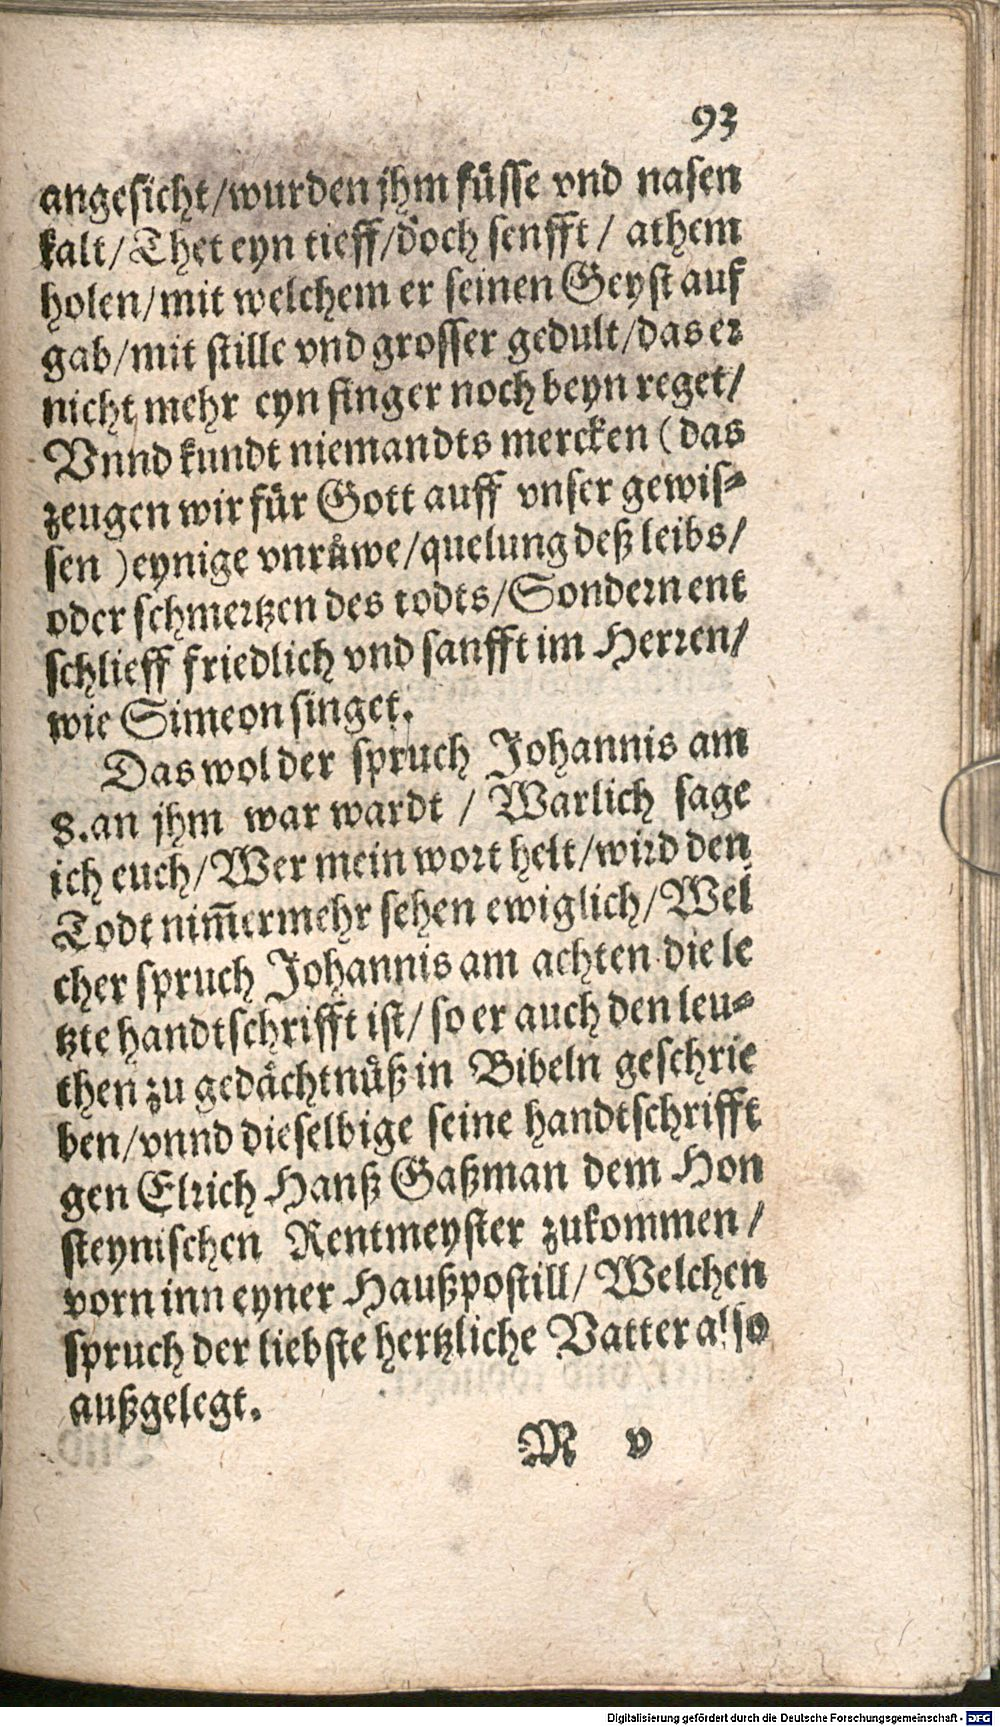 93
angesicht/wurden jhm füsse vnd nasen
kalt/Thet eyn tieff/doch senfft/ athem
holen/mit welchem er seinen Geyst auf
gab/mit stille vnd grosser gedult/das er
nicht mehr eyn finger noch beyn reget/
Vnnd kundt niemandts mercken (das
zeugen wir für Gott auff vnser gewis-
sen) eynige vnråwe/quelung deß leibs/
oder schmertzen des todts/Sondern ent
schlieff friedlich vnd sanfft im Herren/
wie Simeon singet.
Das wol der spruch Johannis am
8. an jhm war wardt / Warlich sage
ich euch/Wer mein wort helt/wird den
Todt nim̄ermehr sehen ewiglich/Wel
cher spruch Johannis am achten die le
tzte handtschrifft ist/ so er auch den leu-
then zu gedächtnüß in Bibeln geschrie
ben/vnnd dieselbige seine handtschrifft
gen Elrich Hanß Gaßman dem Hon
steynischen Rentmeyster zukommen/
vorn inn eyner Haußpostill/ Welchen
spruch der liebste hertzliche Vatter also
außgelegt.
M v
Digitalisierung gefördert durch die Deutsche Forschungsgemeinschaft - DFG